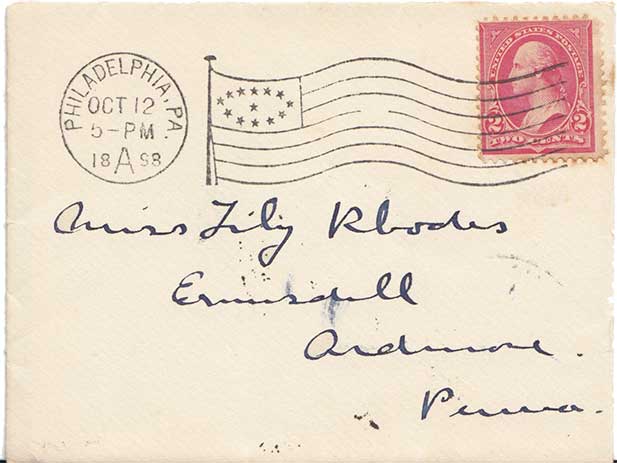 PHILADELPHIA, PA.
OCT 12
5-PM
18 A 98
UNITED STATES POSTAGE
2 2
TWO CENTS
Miss Lily Rhodes
Ardmore.
Penna.